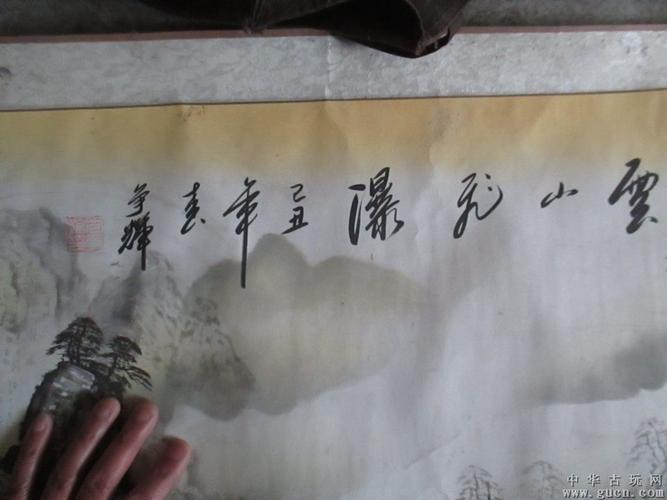 雲山飛瀑 己丑年春 争輝
中华古玩网
www.gucn.com